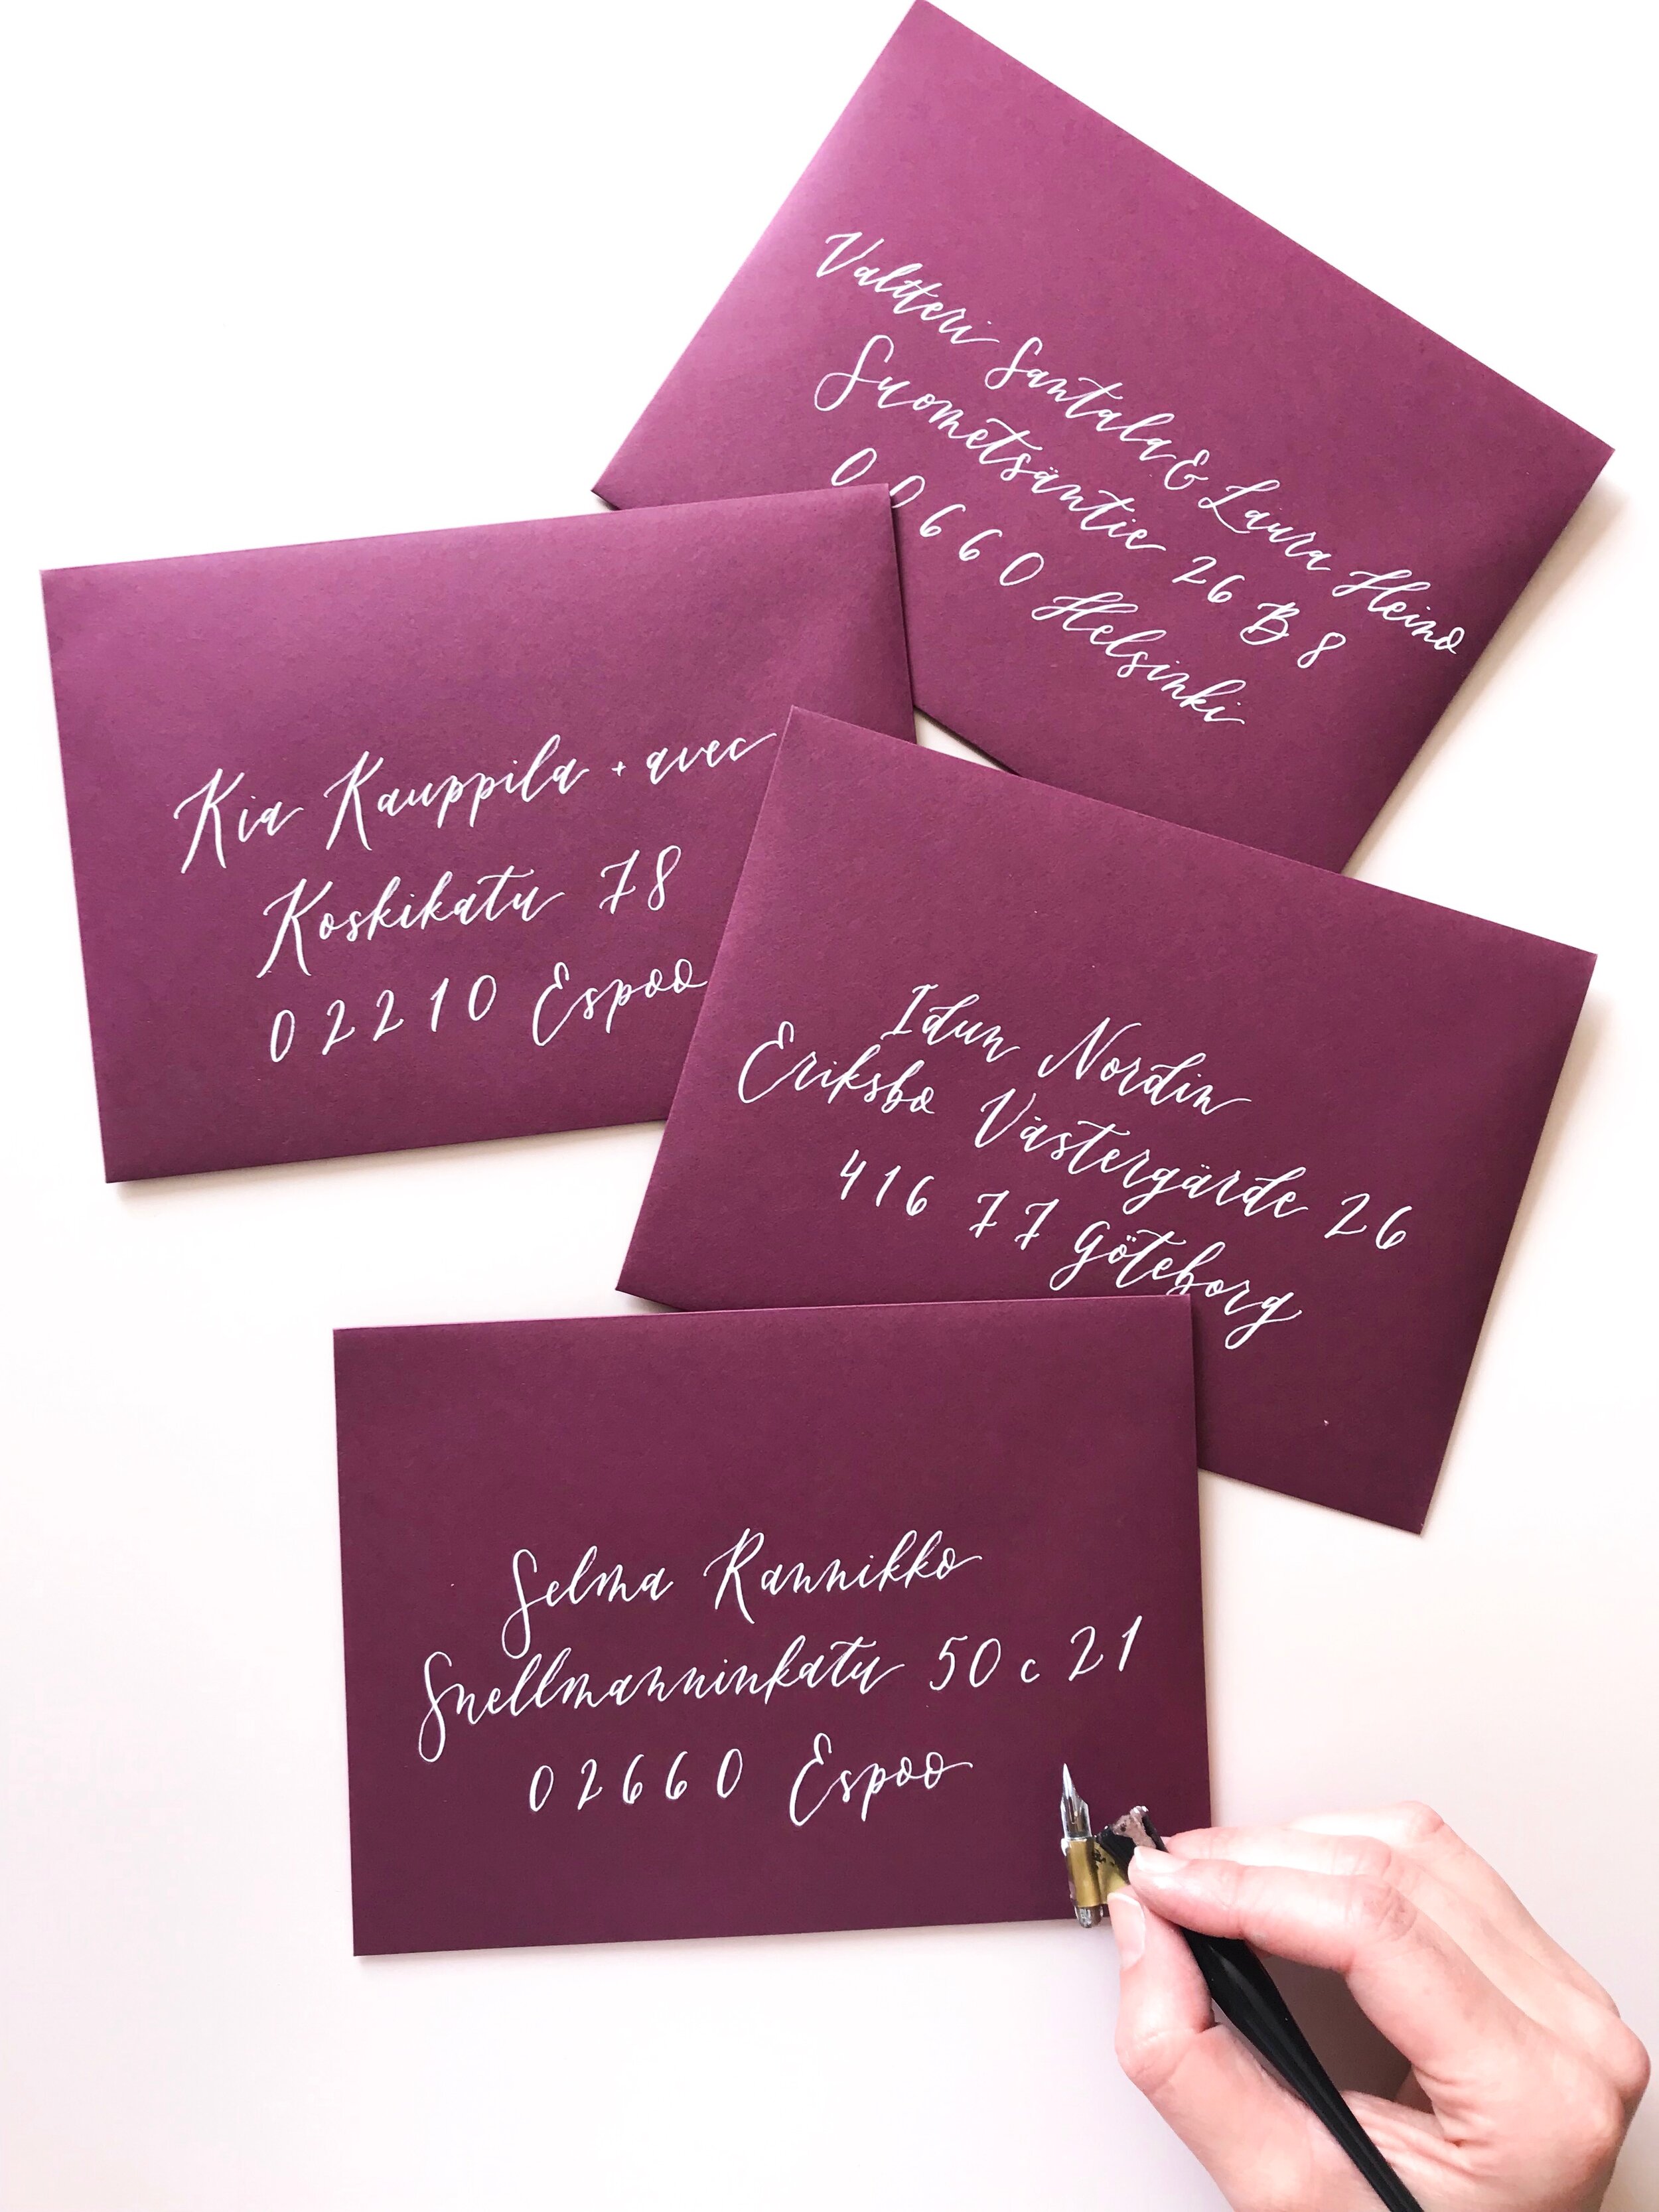 Valtteri Santala & Laura Heino
Suometsäntie 26 B 8
00660 Helsinki
Kia Kauppila + avec
Koskikatu 78
02210 Espoo
Idun Nordin
Eriksbo Västergärde 26
416 77 Göteborg
Selma Rannikko
Snellmanninkatu 50 c 21
02660 Espoo